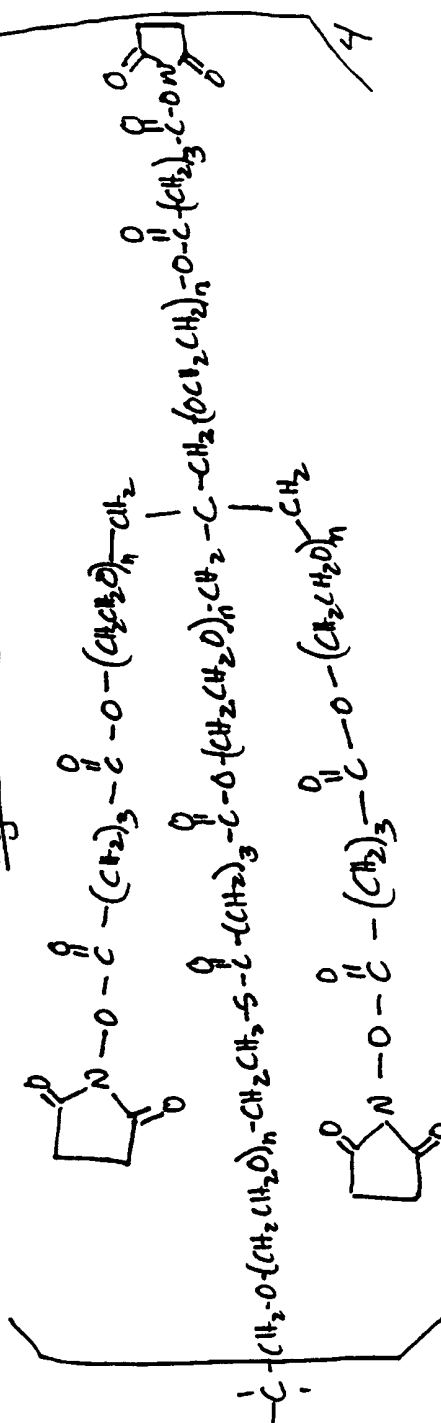 O O O
N-O-C-(CH2)3-C-O-(CH2CH2O)n-CH2
O
O O O O O
-C-CH2-O-(CH2CH2O)n-CH2CH2-S-C-(CH2)3-C-O-(CH2CH2O)n-CH2-C-CH2(OCH2CH2)n-O-C-(CH2)3-C-ON
O
4
O O O
N-O-C-(CH2)3-C-O-(CH2CH2O)n-CH2
O